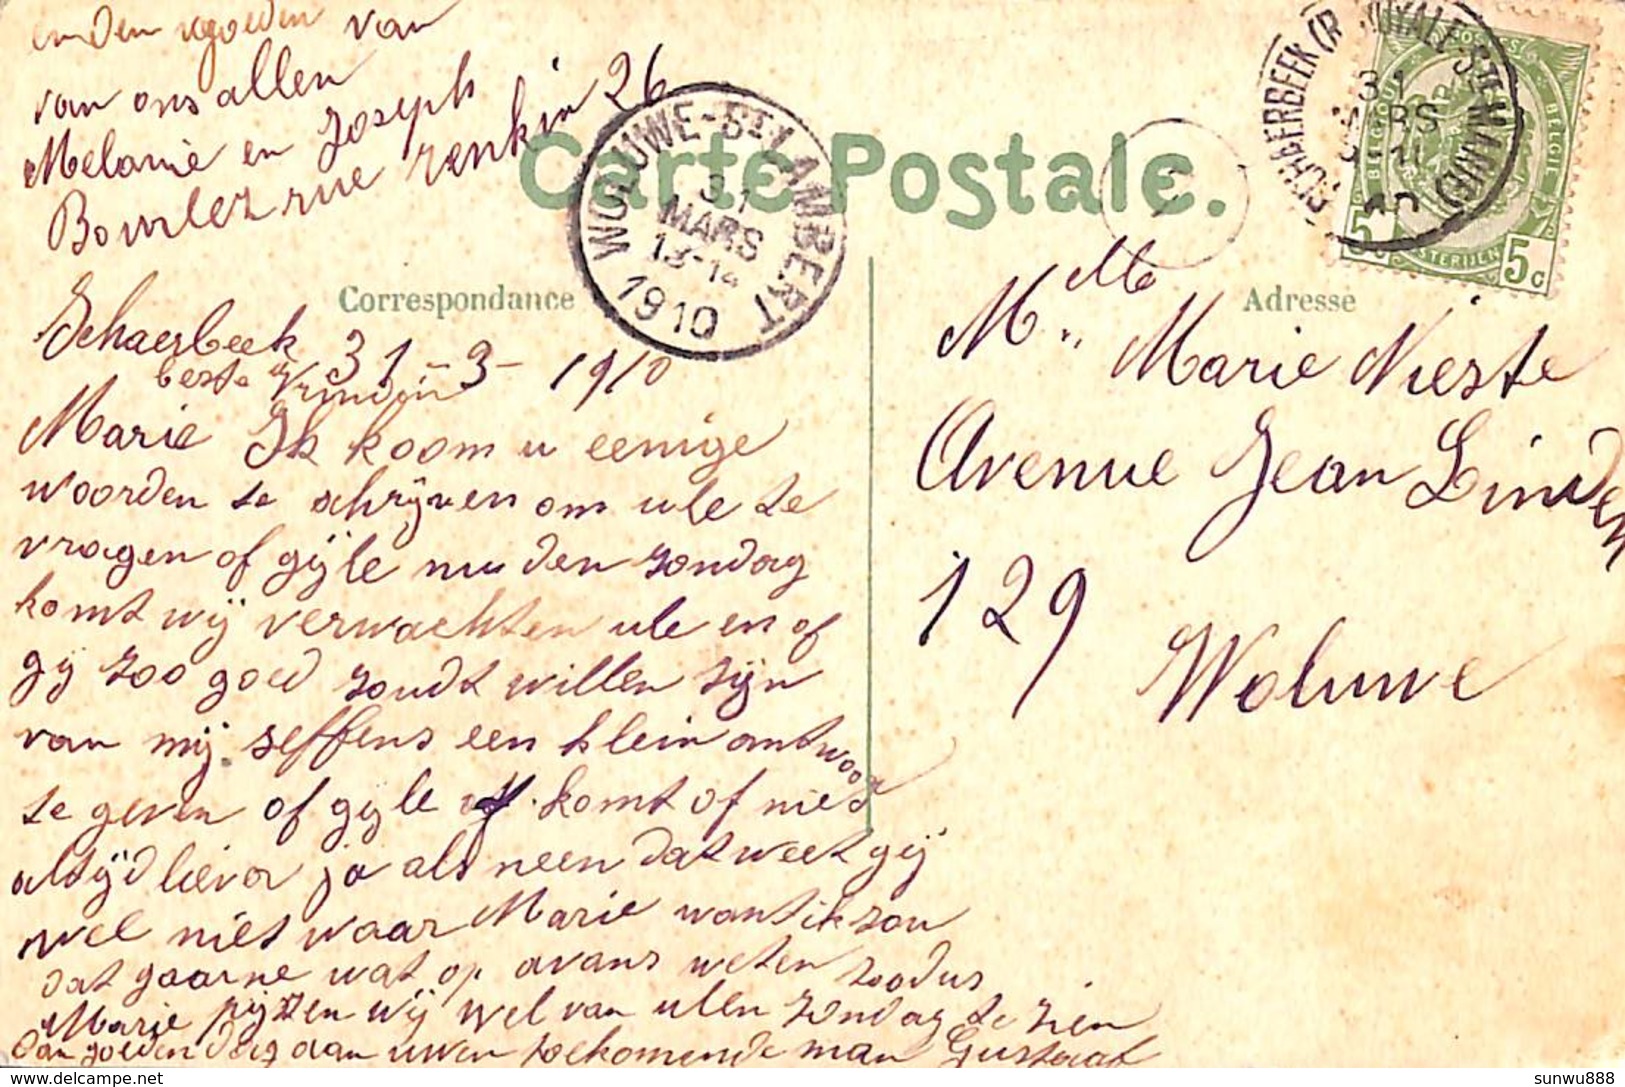 en den goeden van
van ons allen
Melanie en Joseph
Bourlez rue renkin 26
Carte Postale.
WOLUWE-ST LAMBERT
31
MARS
13-14
1910
SCHAERBEEK (R ROYALE-STE MARIE)
31
MARS
10
POSTES
BELGIQUE
BELGIE
POSTERIJEN
5c
5c
Correspondance
Adresse
Schaerbeek 31-3-1910
beste Vrindin
Marie Ik koom u eenige
woorden te schrijven om ule te
vragen of gijle nu den zondag
komt wij verwachten ule en of
gij zoo goed zoudt willen zijn
van mij seffens een klein antwoord
te geven of gijle komt of niet
altijd liever ja als neen dat weet gij
wel niet waar Marie want ik zou
dat gaarne wat op avans weten zoodus
Marie pijzen wij wel van ulen zondag te zien
Den goeden dag aan uwen toekomende man Gustaaf
Mlle
M.. Marie Nieste
Avenue Jean Linden
129
Woluwe
sunwu888